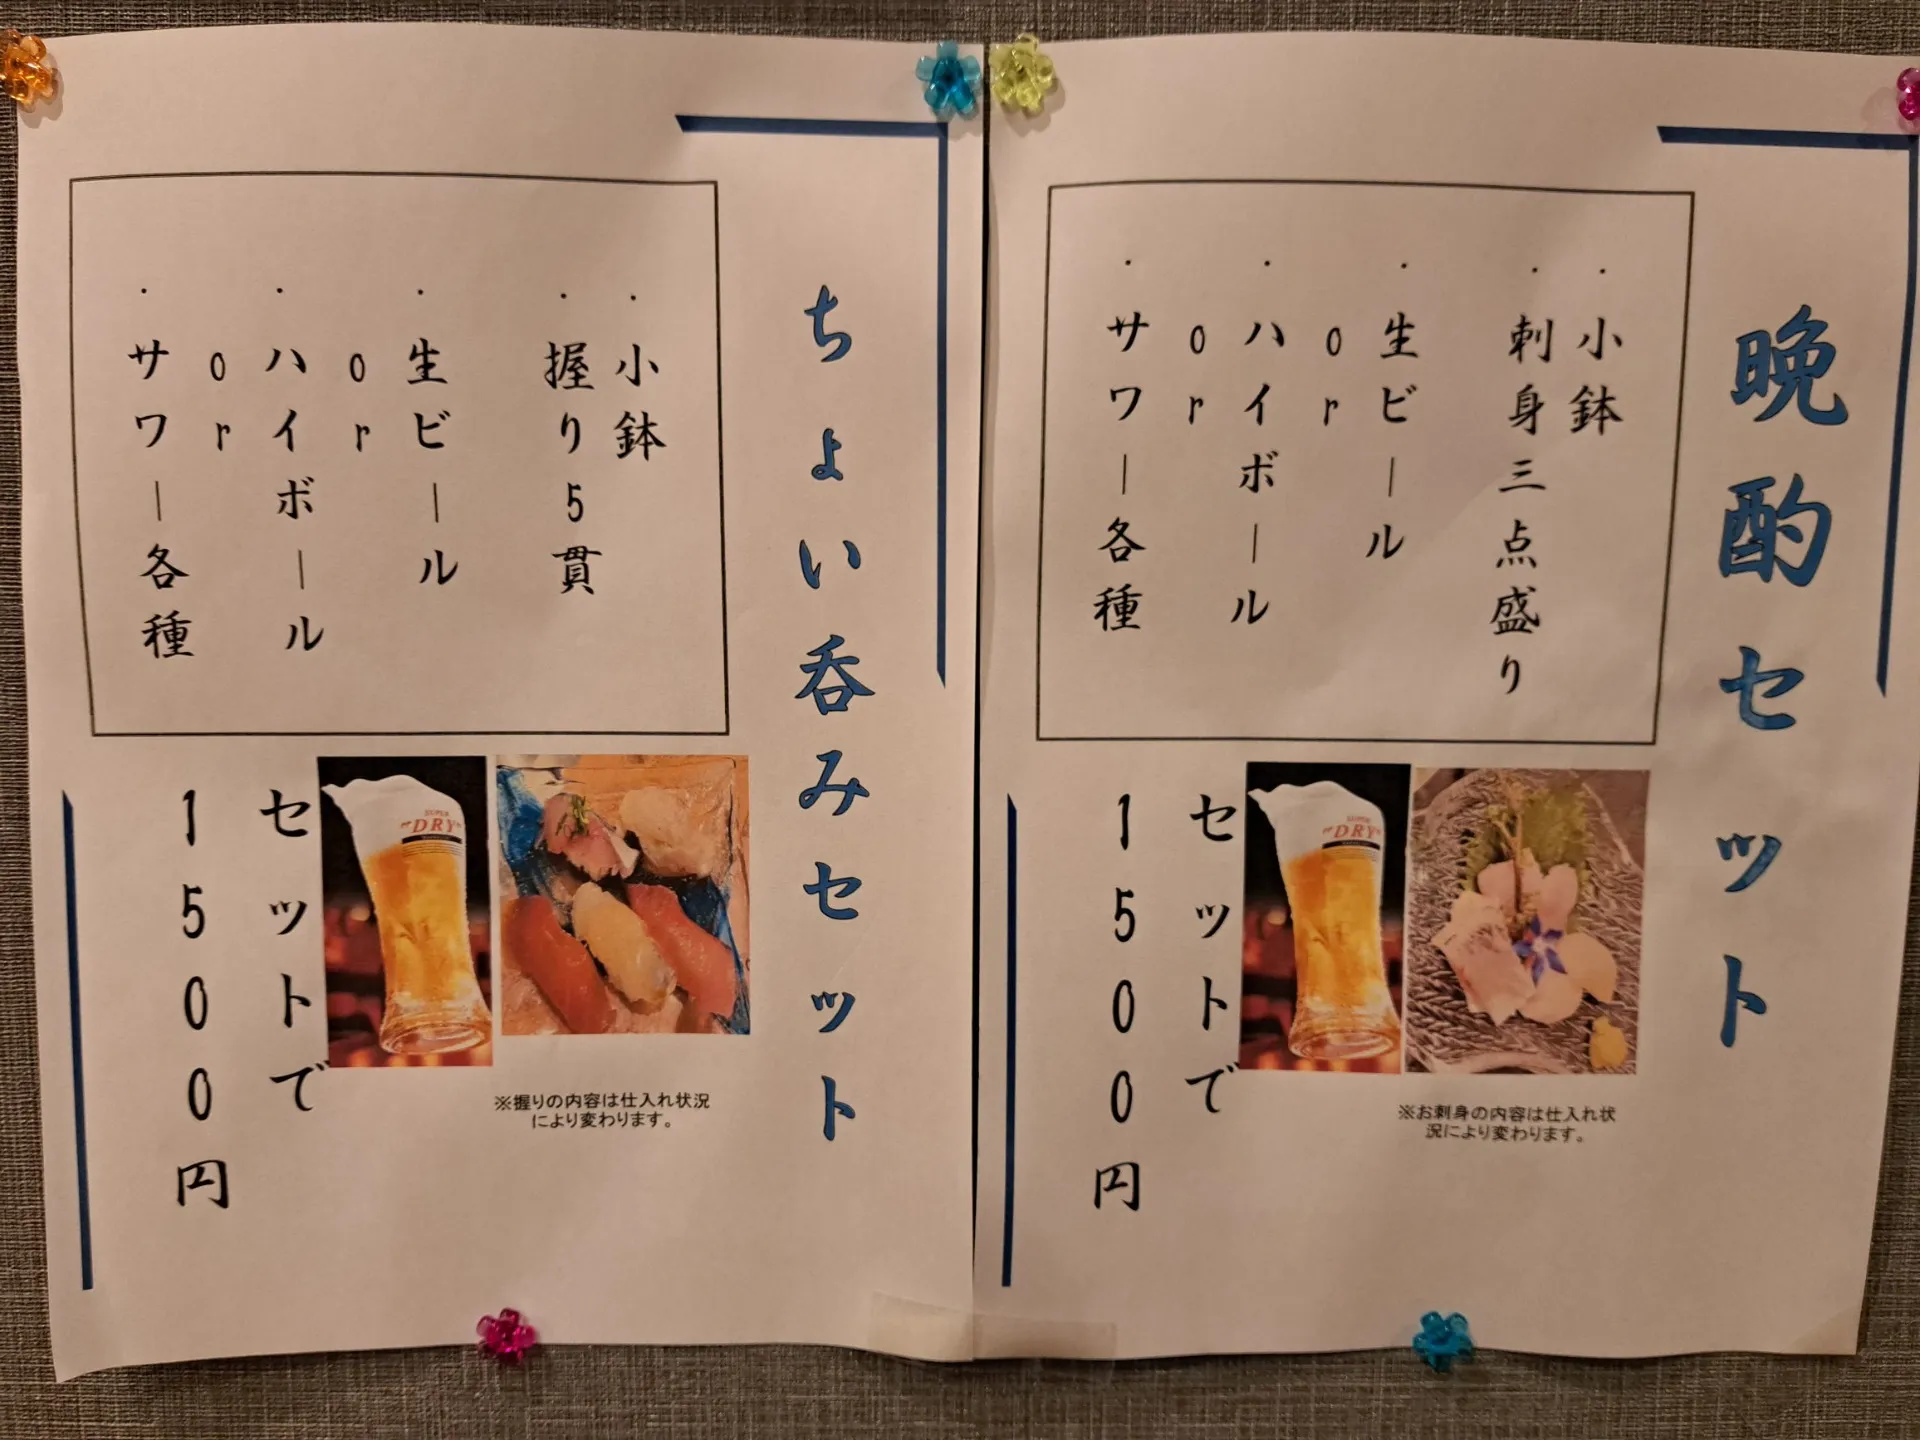 晩酌セット
・小鉢
・刺身三点盛り
・生ビール
or
・ハイボール
or
・サワー各種
SUPER
"DRY"
※お刺身の内容は仕入れ状
況により変わります。
セットで
1500円
ちょい呑みセット
・小鉢
・握り5貫
・生ビール
or
・ハイボール
or
・サワー各種
SUPER
"DRY"
※握りの内容は仕入れ状況
により変わります。
セットで
1500円